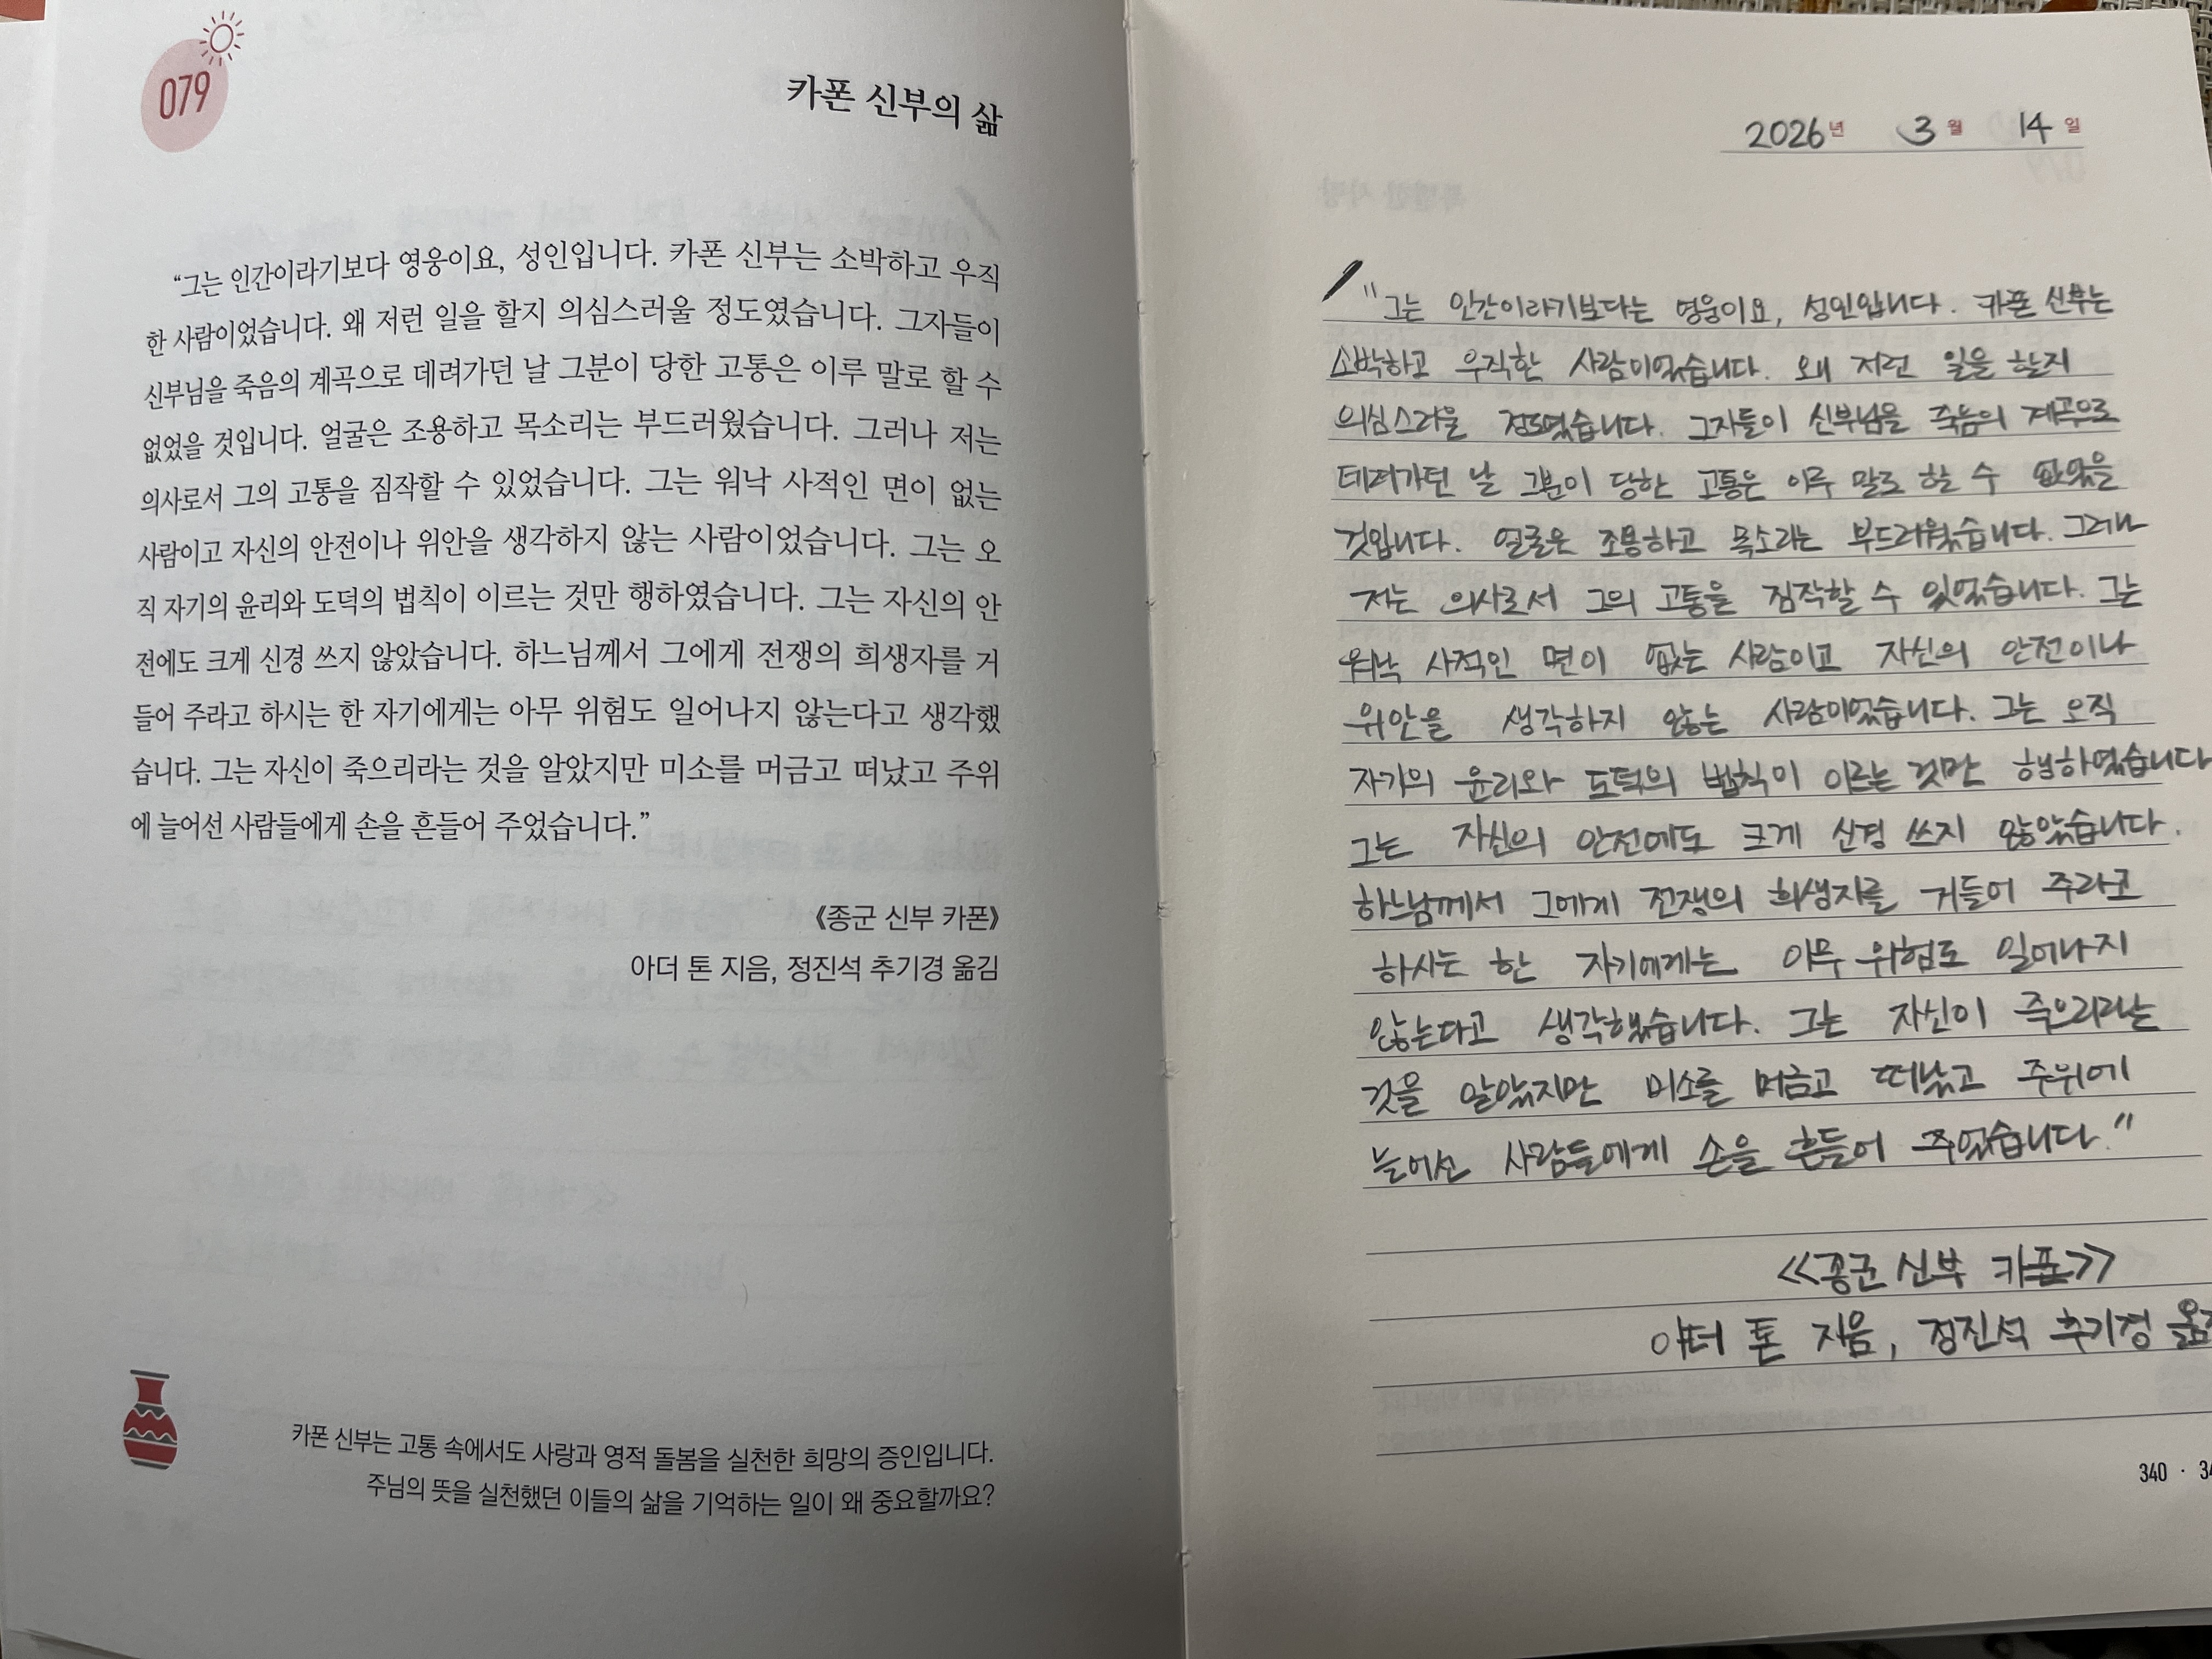 079
카폰 신부의 삶
“그는 인간이라기보다 영웅이요, 성인입니다. 카폰 신부는 소박하고 우직
한 사람이었습니다. 왜 저런 일을 할지 의심스러울 정도였습니다. 그자들이
신부님을 죽음의 계곡으로 데려가던 날 그분이 당한 고통은 이루 말로 할 수
없었을 것입니다. 얼굴은 조용하고 목소리는 부드러웠습니다. 그러나 저는
의사로서 그의 고통을 짐작할 수 있었습니다. 그는 워낙 사적인 면이 없는
사람이고 자신의 안전이나 위안을 생각하지 않는 사람이었습니다. 그는 오
직 자기의 윤리와 도덕의 법칙이 이르는 것만 행하였습니다. 그는 자신의 안
전에도 크게 신경 쓰지 않았습니다. 하느님께서 그에게 전쟁의 희생자를 거
들어 주라고 하시는 한 자기에게는 아무 위험도 일어나지 않는다고 생각했
습니다. 그는 자신이 죽으리라는 것을 알았지만 미소를 머금고 떠났고 주위
에 늘어선 사람들에게 손을 흔들어 주었습니다.”
《종군 신부 카폰》
아더 톤 지음, 정진석 추기경 옮김
카폰 신부는 고통 속에서도 사랑과 영적 돌봄을 실천한 희망의 증인입니다.
주님의 뜻을 실천했던 이들의 삶을 기억하는 일이 왜 중요할까요?
2026년 3월 14일
"그는 인간이라기보다는 영웅이요, 성인입니다. 카폰 신부는
소박하고 우직한 사람이었습니다. 왜 저런 일을 할지
의심스러울 정도였습니다. 그자들이 신부님을 죽음의 계곡으로
데려가던 날 그분이 당한 고통은 이루 말로 할 수 없었을
것입니다. 얼굴은 조용하고 목소리는 부드러웠습니다. 그러나
저는 의사로서 그의 고통을 짐작할 수 있었습니다. 그는
워낙 사적인 면이 없는 사람이고 자신의 안전이나
위안을 생각하지 않는 사람이었습니다. 그는 오직
자기의 윤리와 도덕의 법칙이 이르는 것만 행하였습니다
그는 자신의 안전에도 크게 신경 쓰지 않았습니다.
하느님께서 그에게 전쟁의 희생자를 거들어 주라고
하시는 한 자기에게는 아무 위험도 일어나지
않는다고 생각했습니다. 그는 자신이 죽으리라는
것을 알았지만 미소를 머금고 떠났고 주위에
늘어선 사람들에게 손을 흔들어 주었습니다."
<<종군 신부 카폰>>
아더 톤 지음, 정진석 추기경
340 ·